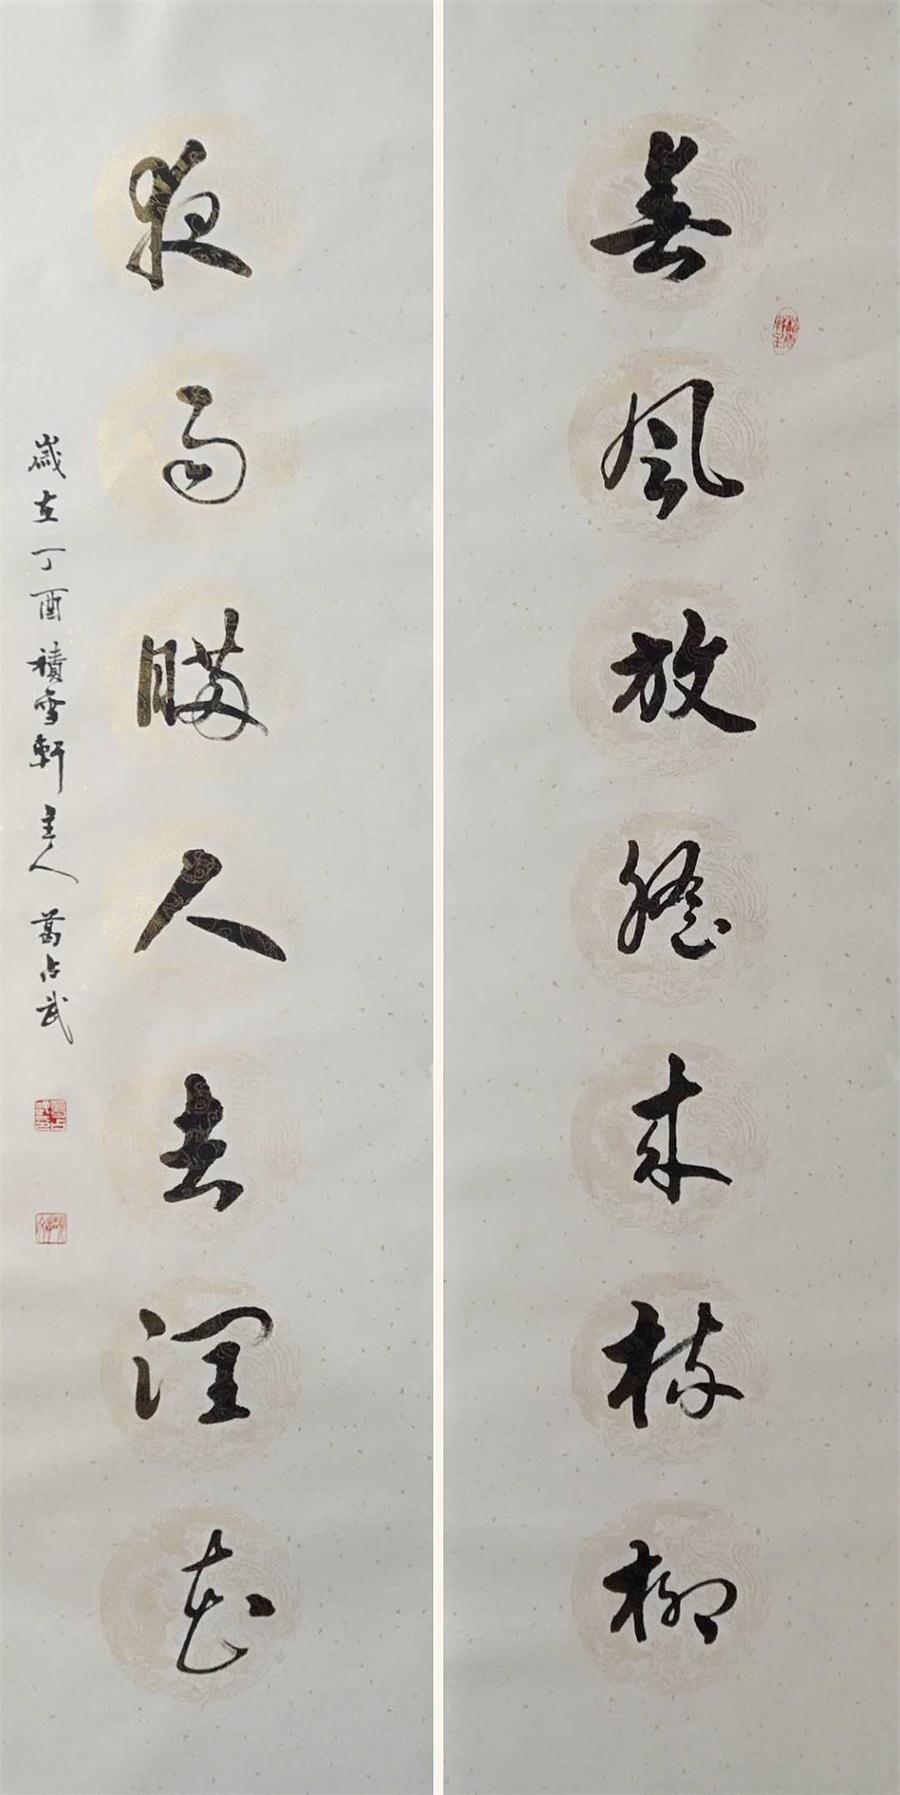 春风放胆来梳柳
夜雨瞒人去润花
歲在丁酉積雪軒主人葛占武